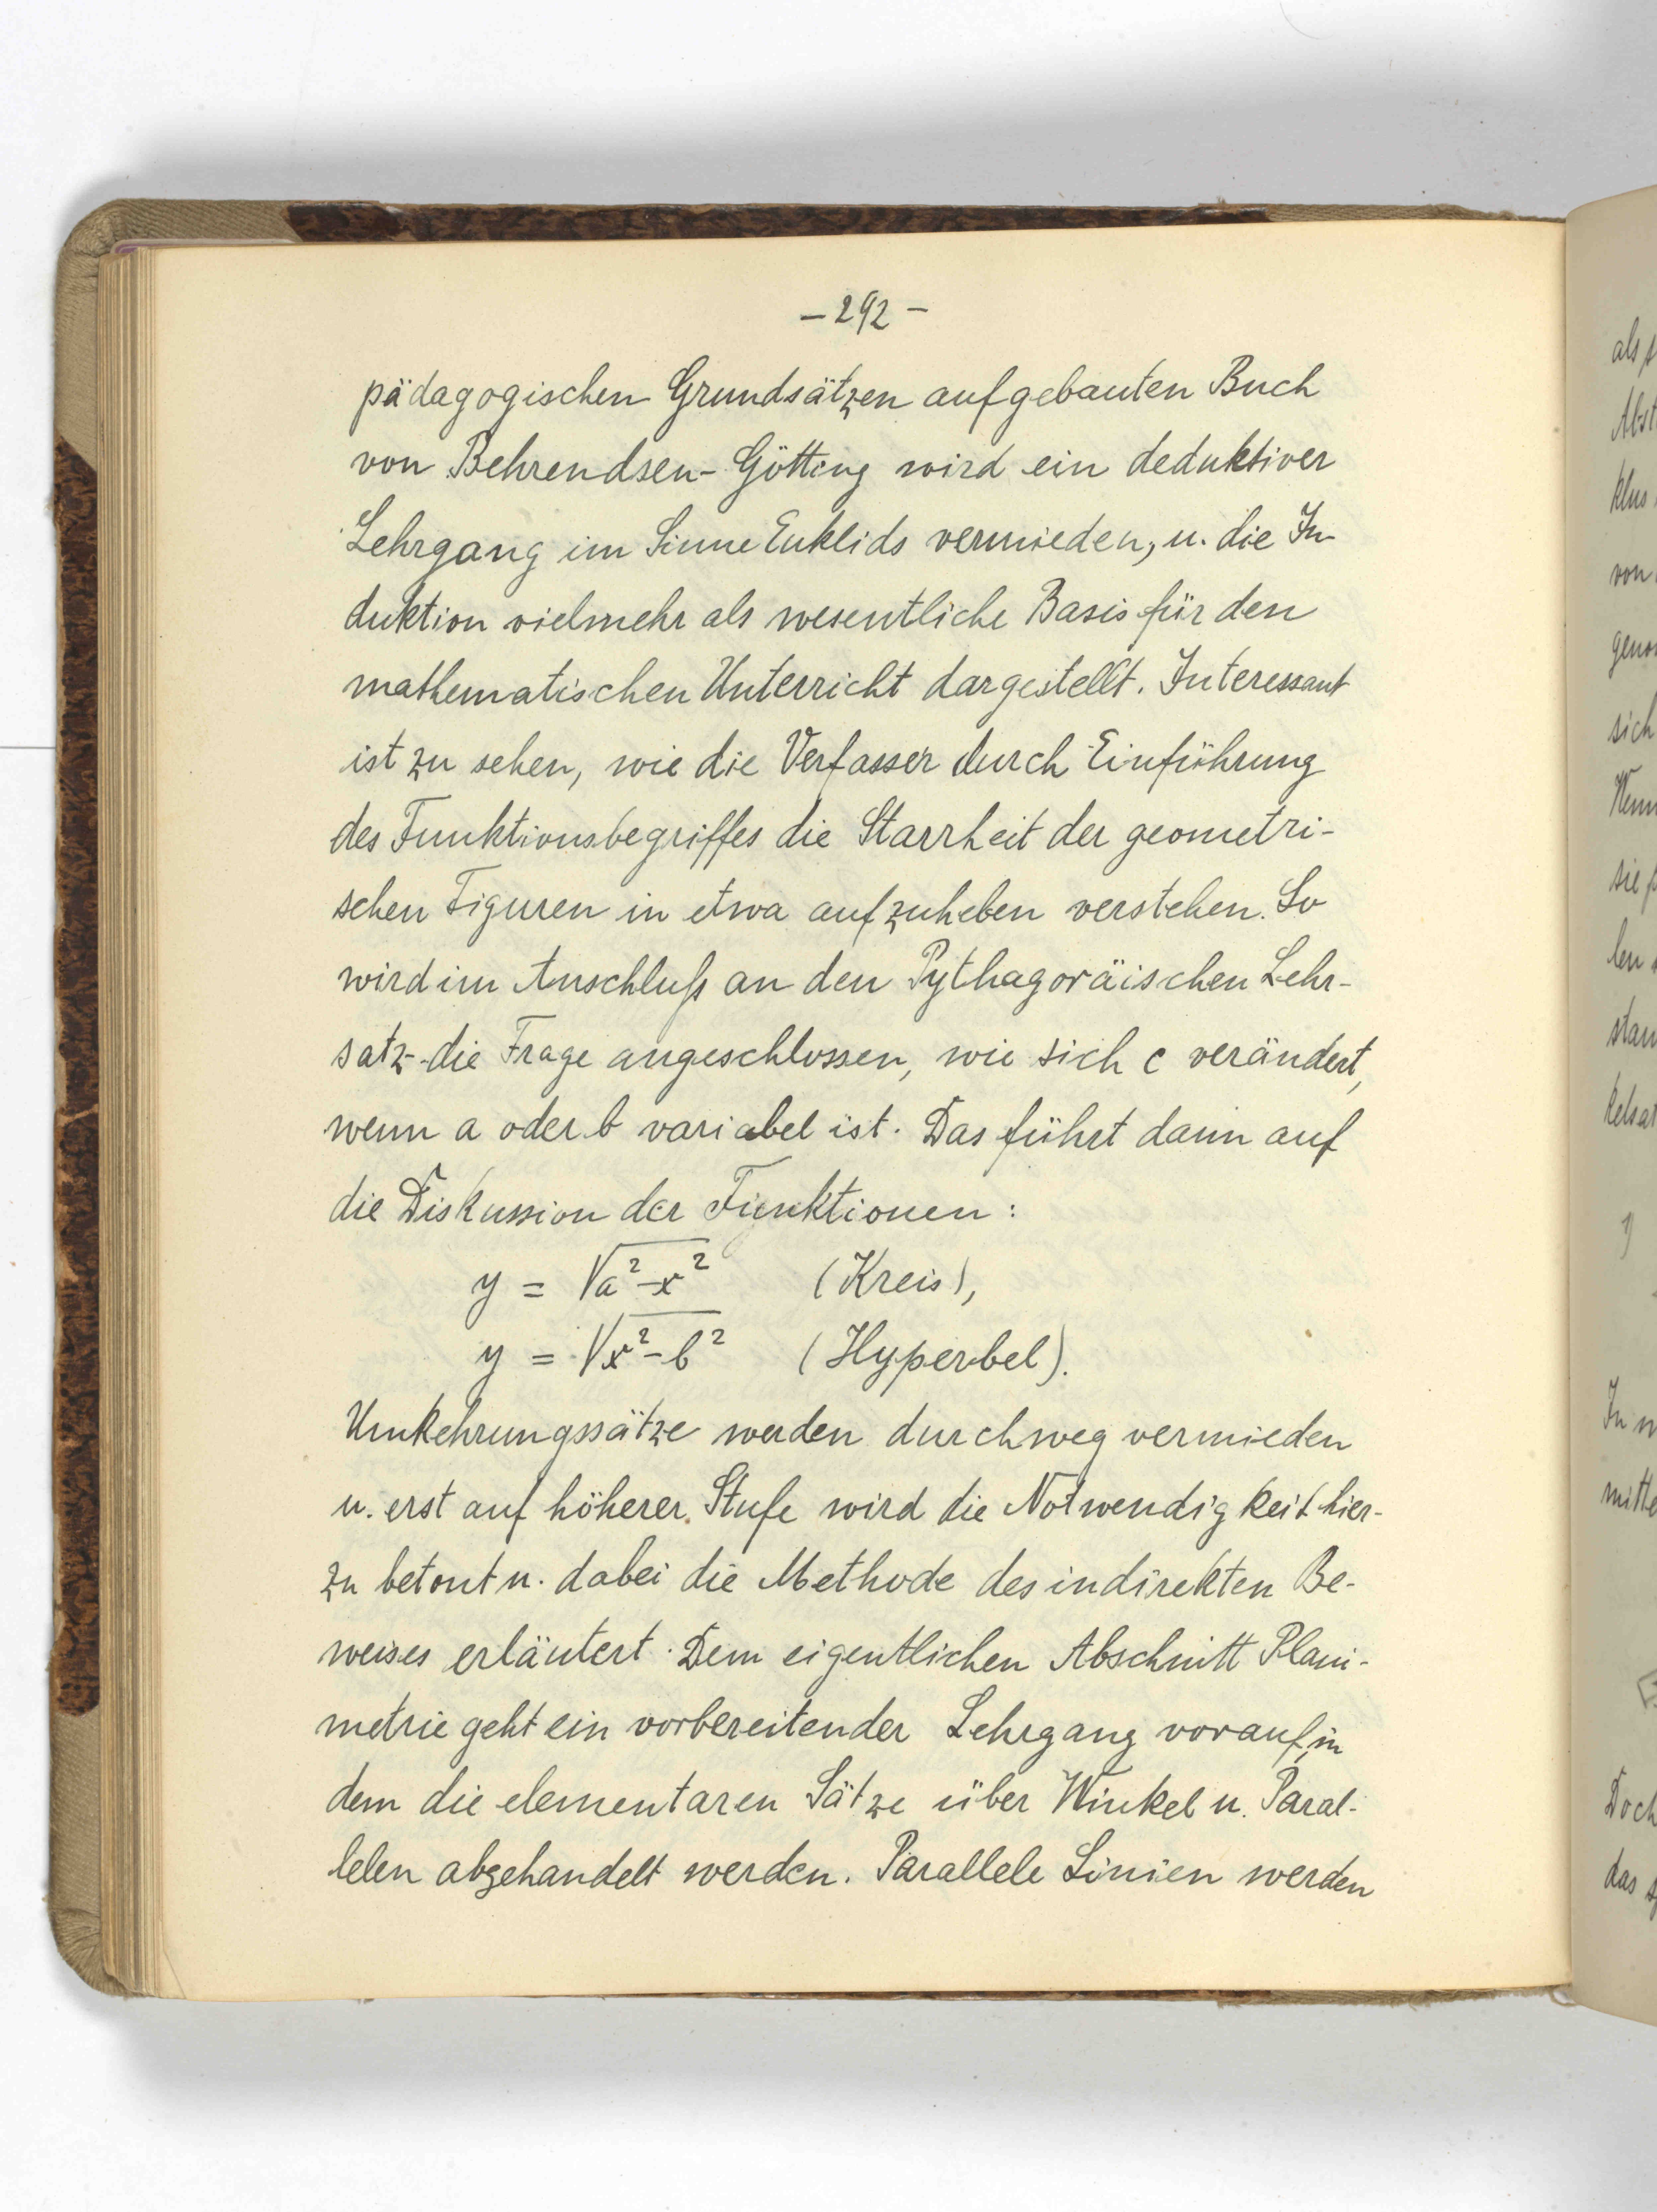 – 292 –
pädagogischen Grundsätzen aufgebauten Buch
von Behrendsen-Götting wird ein deduktiver
Lehrgang im Sinne Euklids vermieden, u. die In-
duktion vielmehr als wesentliche Basis für den
mathematischen Unterricht dargestellt. Interessant
ist zu sehen, wie die Verfasser durch Einführung
des Funktionsbegriffes die Starrheit der geometri-
schen Figuren in etwa aufzuheben verstehen. So
wird im Anschluß an den Pythagoräischen Lehr-
satz die Frage angeschlossen, wie sich c verändert,
wenn a oder b variabel ist. Das führt dann auf
die Diskussion der Funktionen:
y = √a²-x² (Kreis),
y = √x²-b² (Hyperbel).
Umkehrungssätze werden durchweg vermieden
u. erst auf höherer Stufe wird die Notwendigkeit hier-
zu betont u. dabei die Methode des indirekten Be-
weises erläutert. Dem eigentlichen Abschnitt Plani-
metrie geht ein vorbereitender Lehrgang vorauf, in
dem die elementaren Sätze über Winkel u. Paral-
lelen abgehandelt werden. Parallele Linien werden